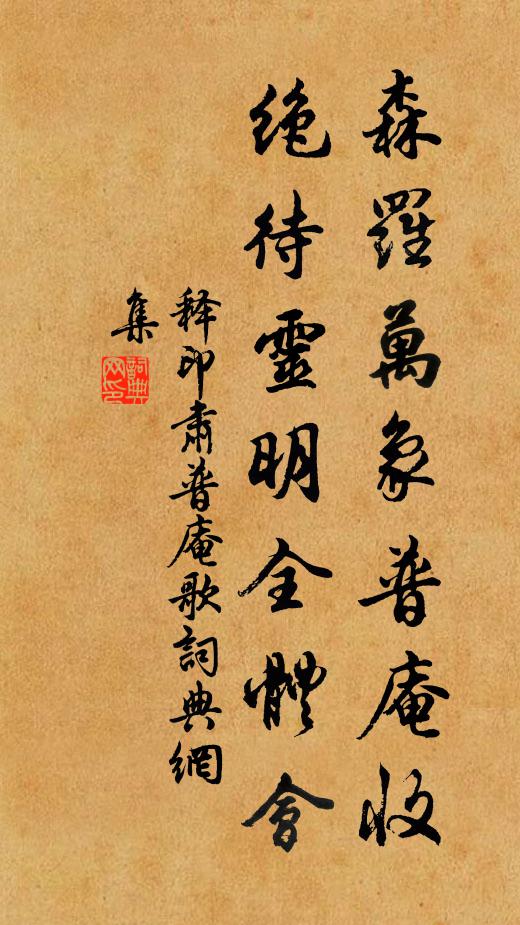 森羅萬象普庵收
绝待靈明全體會
释印肅普庵歌詞典網
集
詞典网印